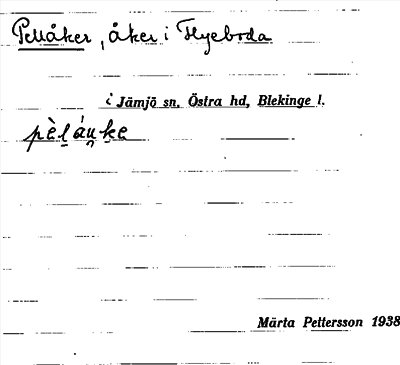 Pellåker, åker i Flyeboda
i Jämjö sn, Östra hd, Blekinge l.
Märta Pettersson 1938